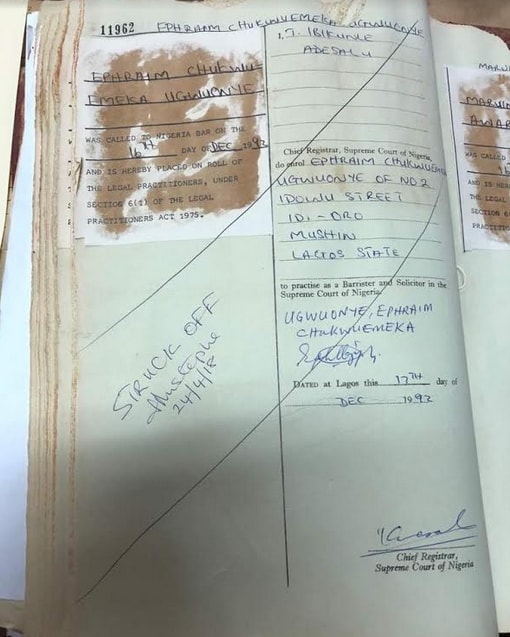 11962 EPHRAIM CHUKWUEMEKA UGWUONYE
EPHRAIM CHUKWU-
EMEKA UGWUONYE
WAS CALLED TO NIGERIA BAR ON THE
16TH DAY OF DEC 1992
AND IS HEREBY PLACED ON ROLL OF
THE LEGAL PRACTITIONERS, UNDER
SECTION 6(1) OF THE LEGAL
PRACTITIONERS ACT 1975.
STRUCK OFF
24/4/18
I, J. IBIKUNLE
ADESALU
Chief Registrar, Supreme Court of Nigeria,
do enrol EPHRAIM CHUKWUEM
UGWUONYE OF NO 2
IDOWU STREET
IDI - ORO
MUSHIN
LAGOS STATE
to practise as a Barrister and Solicitor in the
Supreme Court of Nigeria.
UGWUONYE, EPHRAIM
CHUKWUEMEKA
DATED at Lagos this 17TH day of
DEC 1992
Chief Registrar,
Supreme Court of Nigeria
WAS CALLED
AND IS HER
THE LEGAL
SECTION 6
PRACTITIO